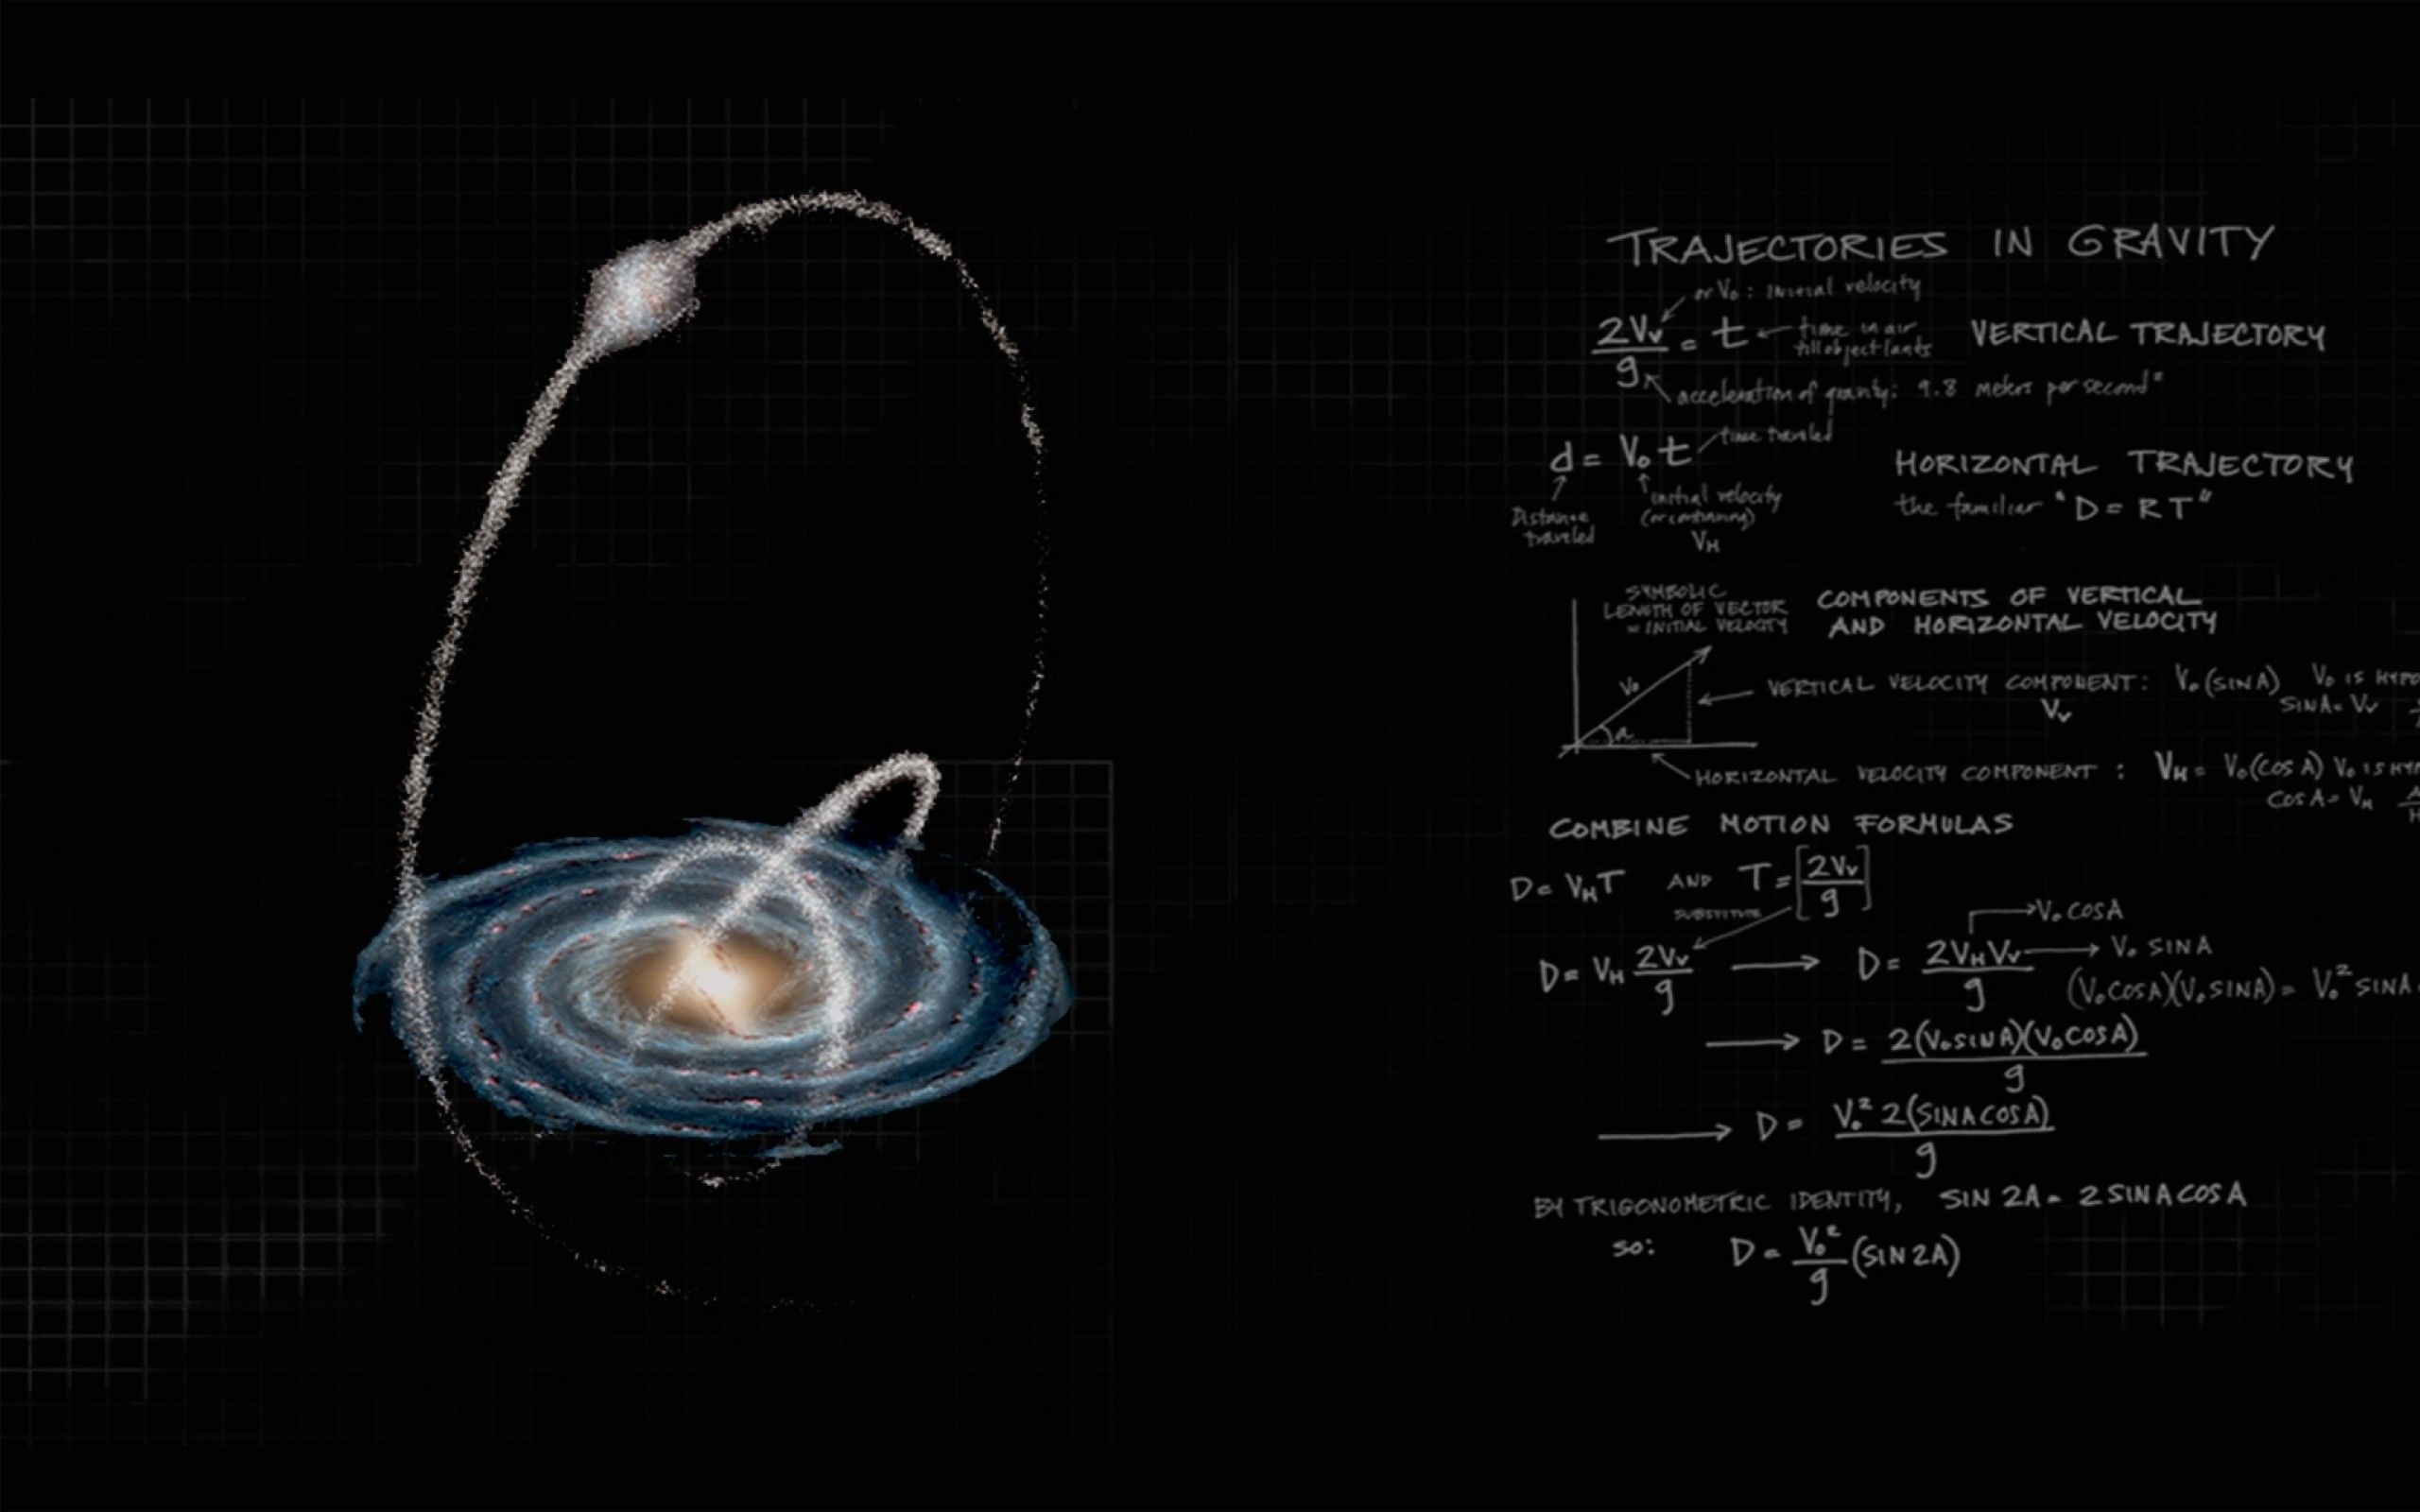 TRAJECTORIES IN GRAVITY
or V₀ : initial velocity
2Vᵥ/g = t
time in air
till object lands
VERTICAL TRAJECTORY
acceleration of gravity: 9.8 meters per second²
d = V₀ t
time traveled
HORIZONTAL TRAJECTORY
the familiar "D = RT"
Distance
traveled
initial velocity
(or continuing)
V_H
SYMBOLIC
LENGTH OF VECTOR
= INITIAL VELOCITY
COMPONENTS OF VERTICAL
AND HORIZONTAL VELOCITY
V₀
a
VERTICAL VELOCITY COMPONENT: V₀(SIN A) V₀ IS HYPO
Vᵥ
SIN A = Vᵥ
HORIZONTAL VELOCITY COMPONENT : V_H = V₀(COS A) V₀ IS HY
COS A = V_H A/H
COMBINE MOTION FORMULAS
D = V_H T AND T = [2Vᵥ/g]
SUBSTITUTE
V₀ COSA
D = V_H 2Vᵥ/g → D = 2V_H Vᵥ/g → V₀ SINA
(V₀COSA)(V₀SINA) = V₀² SINA
→ D = 2(V₀SINA)(V₀COSA)/g
→ D = V₀² 2(SINACOSA)/g
BY TRIGONOMETRIC IDENTITY, SIN 2A = 2 SINACOSA
SO: D = V₀²/g (SIN 2A)